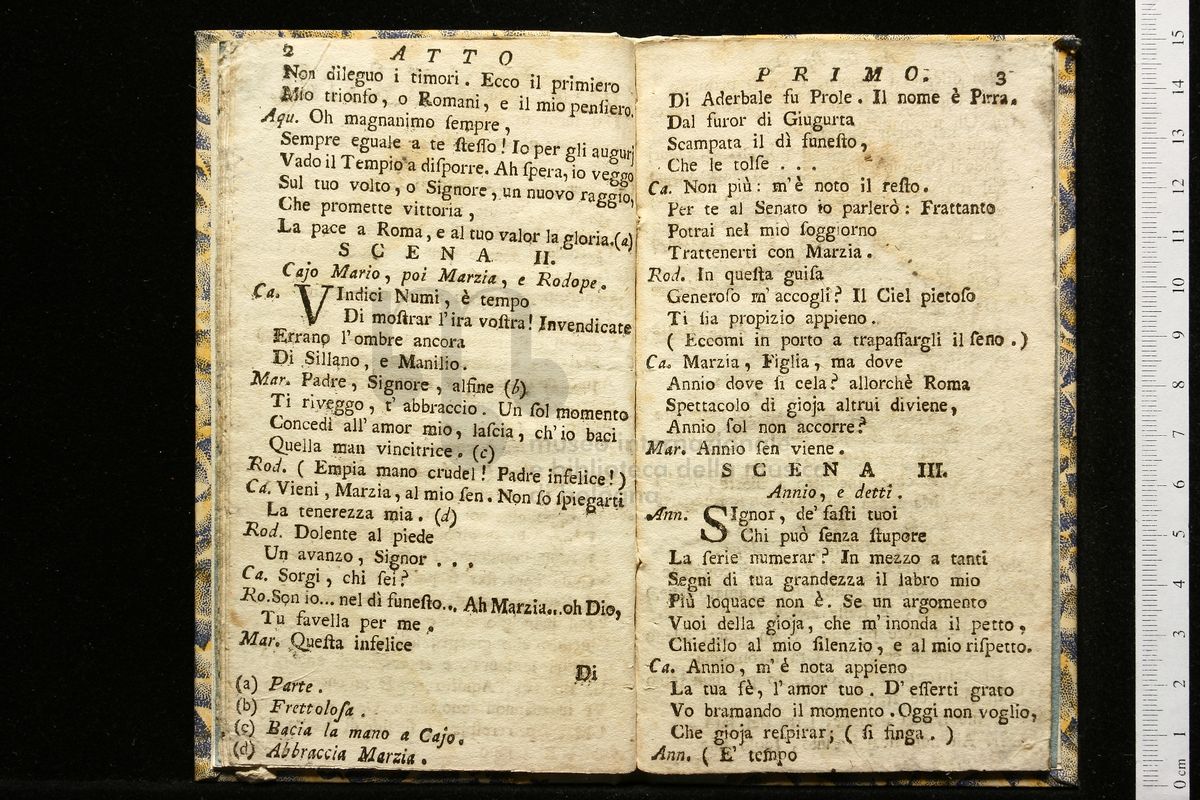 2 ATTO
Non dileguo i timori. Ecco il primiero
Mio trionfo, o Romani, e il mio penſiero.
Aqu. Oh magnanimo ſempre,
Sempre eguale a te ſteſſo! Io per gli augurj
Vado il Tempio a diſporre. Ah ſpera, io veggo
Sul tuo volto, o Signore, un nuovo raggio,
Che promette vittoria,
La pace a Roma, e al tuo valor la gloria.(a)
SCENA II.
Cajo Mario, poi Marzia, e Rodope.
Ca. VIndici Numi, è tempo
Di moſtrar l'ira voſtra! Invendicate
Errano l'ombre ancora
Di Sillano, e Manilio.
Mar. Padre, Signore, alfine (b)
Ti riveggo, t'abbraccio. Un ſol momento
Concedi all'amor mio, laſcia, ch'io baci
Quella man vincitrice. (c)
Rod. ( Empia mano crudel! Padre infelice! )
Ca. Vieni, Marzia, al mio ſen. Non ſo ſpiegarti
La tenerezza mia. (d)
Rod. Dolente al piede
Un avanzo, Signor . . .
Ca. Sorgi, chi ſei?
Ro. Son io... nel dì funeſto... Ah Marzia...oh Dio,
Tu favella per me.
Mar. Queſta infelice
Di
(a) Parte.
(b) Frettoloſa.
(c) Bacia la mano a Cajo.
(d) Abbraccia Marzia.
PRIMO. 3
Di Aderbale fu Prole. Il nome è Pirra.
Dal furor di Giugurta
Scampata il dì funeſto,
Che le tolſe . . .
Ca. Non più: m'è noto il reſto.
Per te al Senato io parlerò: Frattanto
Potrai nel mio ſoggiorno
Trattenerti con Marzia.
Rod. In queſta guiſa
Generoſo m'accogli? Il Ciel pietoſo
Ti ſia propizio appieno.
( Eccomi in porto a trapaſſargli il ſeno. )
Ca. Marzia, Figlia, ma dove
Annio dove ſi cela? allorchè Roma
Spettacolo di gioja altrui diviene,
Annio ſol non accorre?
Mar. Annio ſen viene.
SCENA III.
Annio, e detti.
Ann. SIgnor, de' faſti tuoi
Chi può ſenza ſtupore
La ſerie numerar? In mezzo a tanti
Segni di tua grandezza il labro mio
Più loquace non è. Se un argomento
Vuoi della gioja, che m'inonda il petto,
Chiedilo al mio ſilenzio, e al mio riſpetto.
Ca. Annio, m'è nota appieno
La tua fè, l'amor tuo. D'eſſerti grato
Vo bramando il momento. Oggi non voglio,
Che gioja reſpirar; ( ſi finga. )
Ann. ( E' tempo
museo internazionale
e biblioteca della musica
0 cm 1 2 3 4 5 6 7 8 9 10 11 12 13 14 15